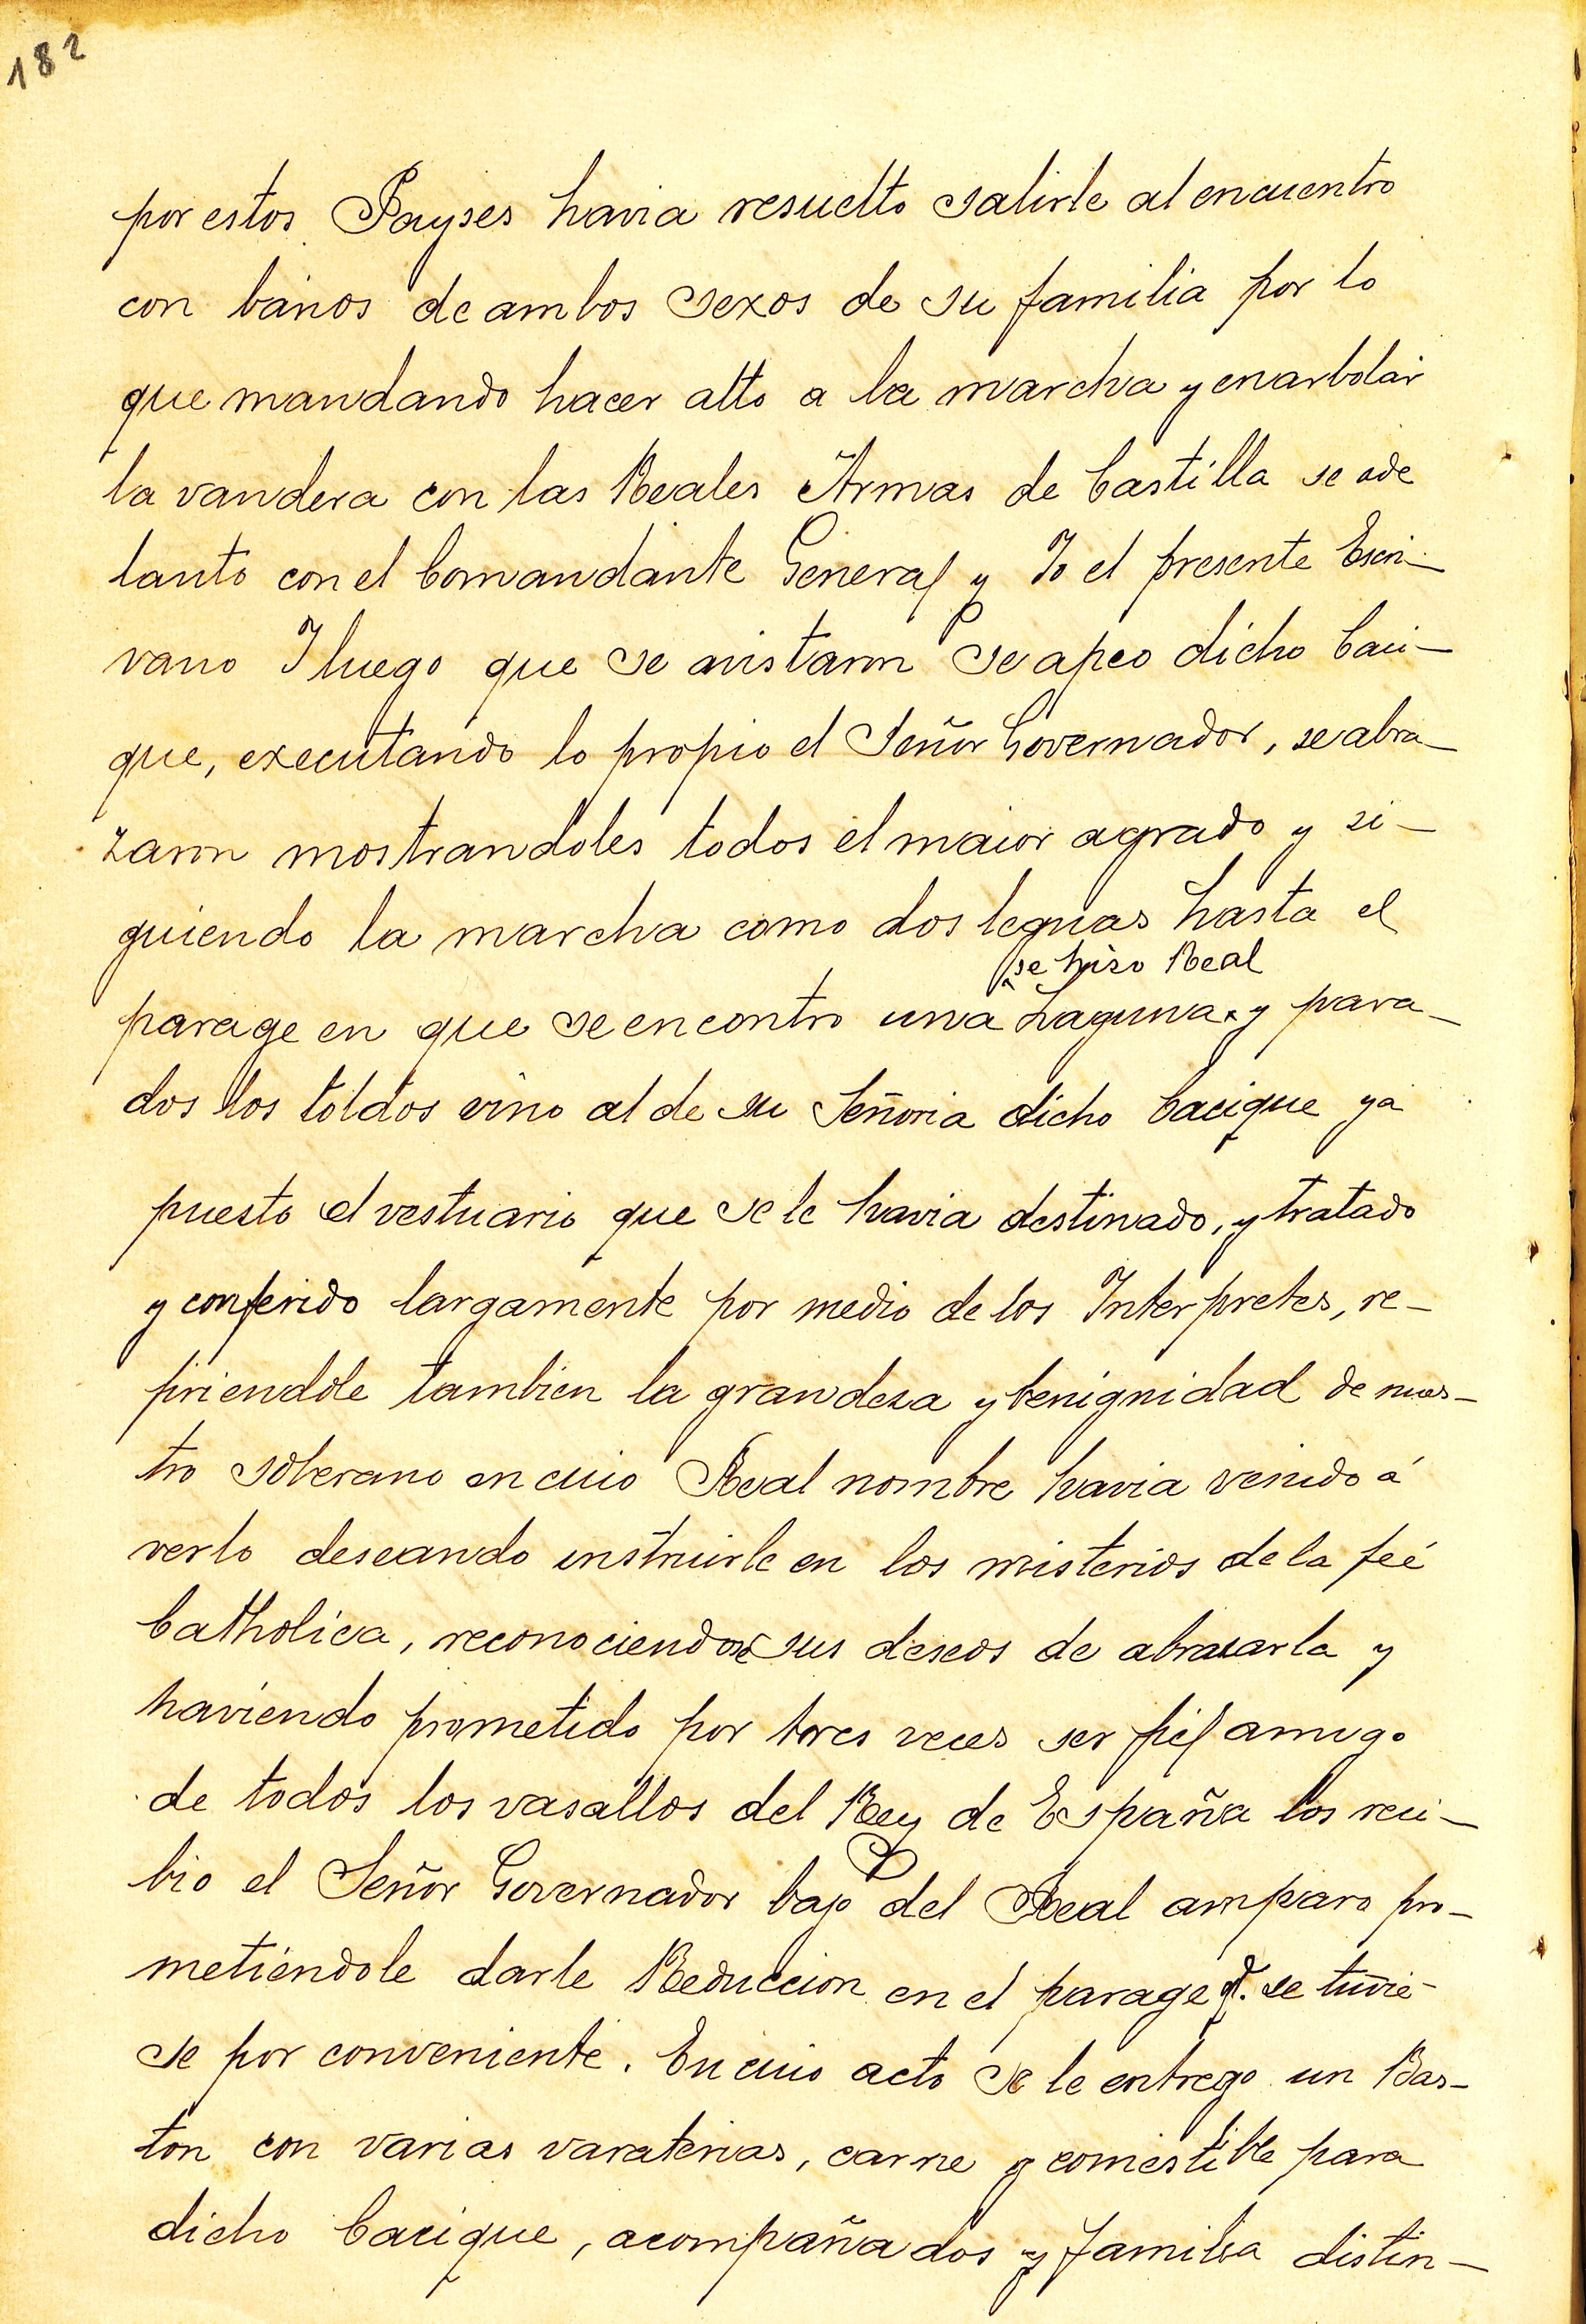 182
por estos Payses havia resuelto salirle al encuentro
con barios de ambos sexos de su familia por lo
que mandando hacer alto a la marcha y enarbolar
la vandera con las Reales Armas de Castilla se ade
lanto con el Comandante General y Yo el presente Escri-
vano Y luego que se avistaron se apeo dicho Caci-
que, executando lo propio el Señor Governador, se abra-
zaron mostrandoles todos el maior agrado y si-
guiendo la marcha como dos leguas hasta el
se hizo Real
parage en que se encontro una Laguna y para-
dos los toldos vino al de su Señoria dicho Cacique ya
puesto el vestuario que se le havia destinado, y tratado
y conferido largamente por medio de los Interpretes, re-
firiendole tambien la grandeza y benignidad de nues-
tro soberano en cuio Real nombre havia venido á
verlo deseando instruirle en los misterios de la feé
Catholica, reconociendose sus deseos de abrazarla y
haviendo prometido por tres veces ser fiel amigo
de todos los vasallos del Rey de España los reci-
bio el Señor Governador bajo del Real amparo pro-
metiéndole darle Reduccion en el parage q. se tuvie-
se por conveniente. En cuio acto se le entrego un Bas-
ton con varias varaterias, carne y comestible para
dicho Cacique, acompañados y familia distin-